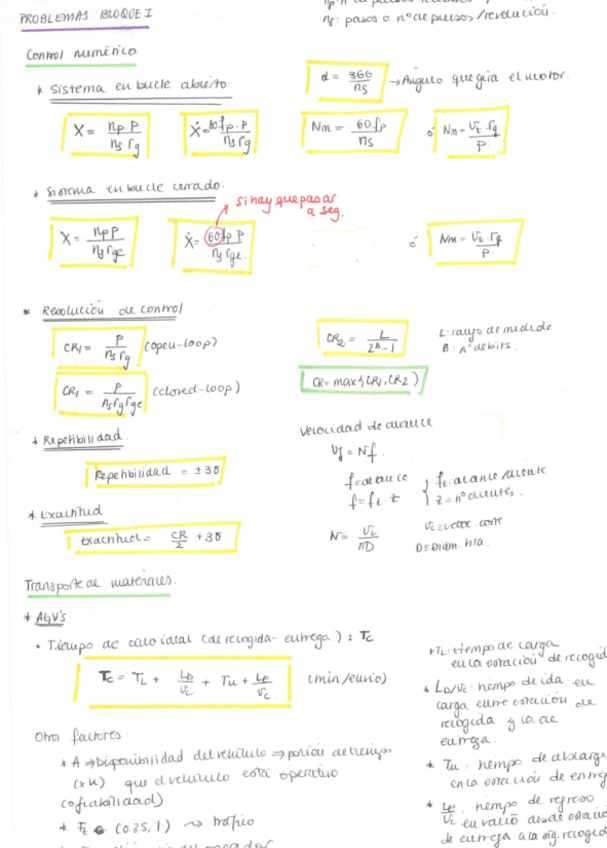 PROBLEMAS BLOQUE I
nf: pasos o nº de pulsos /revolución.
Control numérico
* Sistema en bucle abierto
α = 360/ns → Ángulo que gira el motor.
X = np·P / ns rg
Ẋ = 60 fp·P / ns rg
Nm = 60 fp / ns
ó Nm = Vt·rg / P.
* Sistema en bucle cerrado.
si hay que pasar
a seg.
X = np P / ns rge
Ẋ = 60 fp P / ns rge.
ó Nm = Vt·rg / P.
* Resolución de control
CR1 = P / ns rg (open-loop)
CR2 = L / 2^B - 1
L: rango de medida
B: nº de bits.
CR1 = P / ns rg rge (closed-loop)
CR = max{CR1, CR2}
* Repetibilidad
Repetibilidad = ±3σ
Velocidad de avance
Vf = Nf
f = avance
f = ft·z
ft: avance diente
z = nº dientes.
* Exactitud
Exactitud = CR/2 + 3σ
N = Vc / πD
Vc = veloc. corte
D = Diam. hta.
Transporte de materiales.
* AGV's
• Tiempo de ciclo ideal (de recogida - entrega): Tc
Tc = TL + LD/Vc + Tu + LE/Vc (min/envio)
* TL: tiempo de carga
en la estación de recogid
* LD/Vc: tiempo de ida en
carga entre estación de
recogida y la de
entrega.
* Tu: tiempo de descarga
en la estación de entre
* LE/Vc: tiempo de regreso
en vacío desde estació
de entrega a la sig. recogid
Otros factores.
* A ⇒ Disponibilidad del vehículo ⇒ porción de tiempo
que el vehículo está operativo
(fiabilidad)
* Ft (0.85, 1) → tráfico